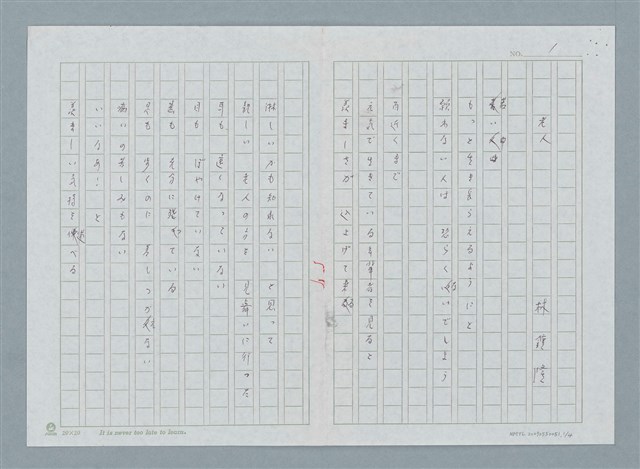 NO. 1
老人
林 鍾隆
老い人は
もっと生き長らえるようにと
願わない人は 恐らくいないでしょう
百近くまで
元気で生きている年輩者を見ると
羨ましさが 込上げて来る
淋しい方も知れない と思って
親しい 老人のうちに 見舞いに行った
耳も 遠くなっていない
目も ぼやけていない
歯も 充分に残っている
足も 歩くのに 差しつかえない
病いの苦しみもない
いいなあ! と
羨ましい気持を述べる
20×25 It is never too late to learn.